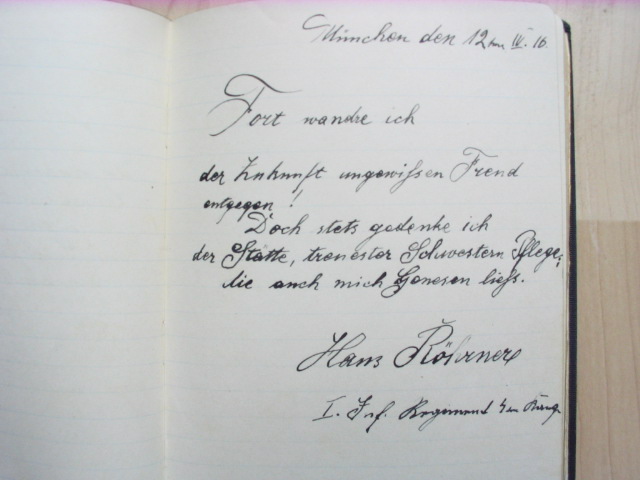 München den 12ten IV. 16.
Fort wandre ich
der Zukunft ungewissen Freud
entgegen!
Doch stets gedenke ich
der Stätte, treuester Schwestern Pflege;
die auch mich Genesen liess.
Hans Röhrner
I. Inf. Regement